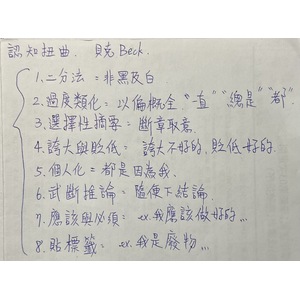 認知扭曲. 貝克Beck.
1.二分法=非黑及白
2.過度類化=以偏概全."一直""總是""都"
3.選擇性摘要=斷章取意.
4.誇大與貶低= 誇大不好的.貶低好的.
5.個人化=都是因為我.
6.武斷推論=隨便下結論
7.應該與必須= ex.我應該做好的...
8.貼標籤= ex.我是廢物...